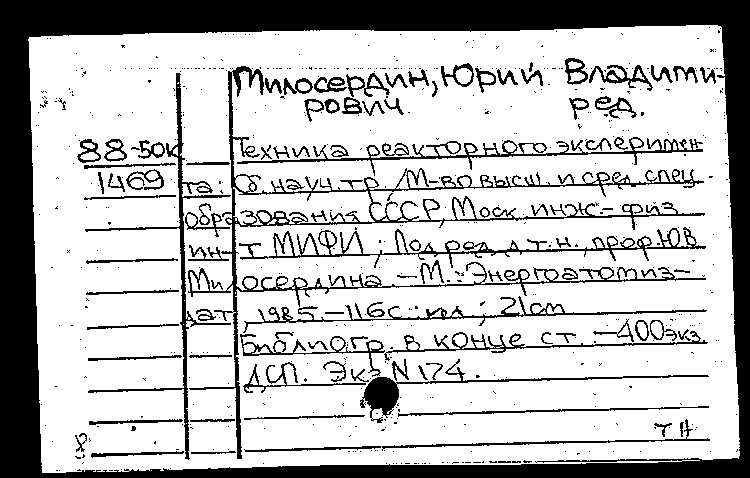 Милосердин, Юрий Владими-
рович ред.
88-50к Техника реакторного эксперимен
1469 та: Сб. науч. тр / М-во высш. и сред. спец.
образования СССР, Моск. инж-физ
ин-т МИФИ ; Под ред. д. т. н., проф. Ю.В
Милосердина. — М.: Энергоатомиз-
дат, 1985. — 116с. : ил ; 21 cm
Библиогр. в конце ст. — 400 экз.
ДСП. Экз N 174.
8 ТН